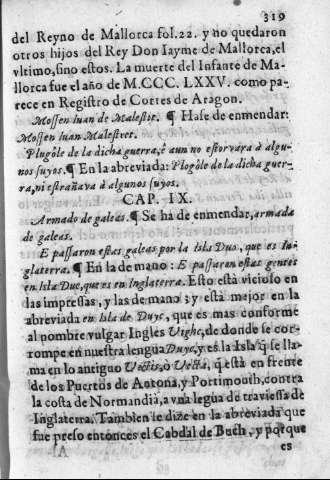 319
del Reyno de Mallorca fol.22. y no quedaron
otros hijos del Rey Don Iayme de Mallorca,el
vltimo,sino estos. La muerte del Infante de Ma-
llorca fue el año de M.CCC. LXXV. como pa-
rece en Registro de Cortes de Aragon.
Mossen Iuan de Malestit. ¶ Hase de enmendar:
Mossen Iuan Malestret.
Plugòle de la dicha guerra,è aun no estorvara à algu-
nos suyos.¶ En la abreviada: Plogòle de la dicha guer-
ra,ni estrañava à algunos suyos.
CAP. IX.
Armado de galeas.¶ Se ha de enmendar,armada
de galeas.
E passaron estas galeas por la Isla Duo, que es In-
glaterra.¶ En la de mano: E passaron estas gentes
en Isla Duc,que es en Inglaterra. Esto està vicioso en
las impressas, y las de mano; y està mejor en la
abreviada en Isla de Duyc, que es mas conforme
al nombre vulgar Ingles Vighc,de donde se cor-
rompe en nuestra lengua Duyc,y es la Isla q̃ se lla-
ma en lo antiguo Vectis,ò Vecta, q̃ està en frente
de los Puertos de Antona,y Portimouth,contra
la costa de Normandia, a vna legua de traviessa de
Inglaterra. Tambien se dize en la abreviada que
fue preso entonces el Cabdal de Buch, y porque
es